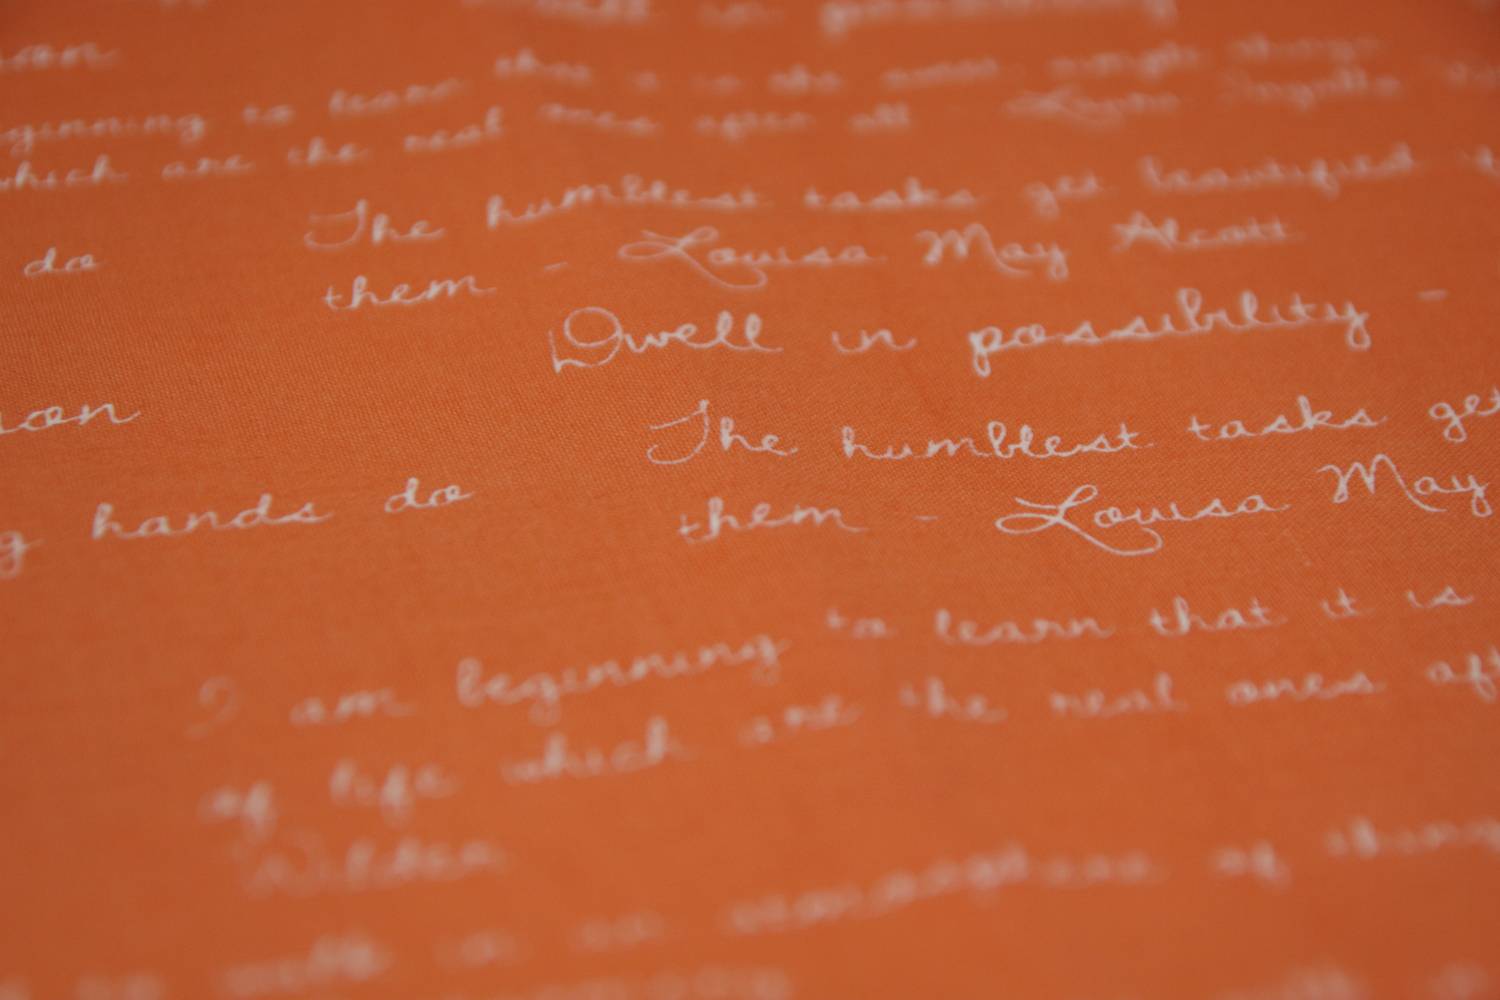 well in possibility
son
eginning to learn that it is the sweet simple things
which are the real ones after all Laura Ingalls
The humblest tasks get beautified if
do
them - Louisa May Alcott
Dwell in possibility -
son
The humblest tasks get
g hands do
them - Louisa May
I am beginning to learn that it is
of life which are the real ones aft
Wilder
of things